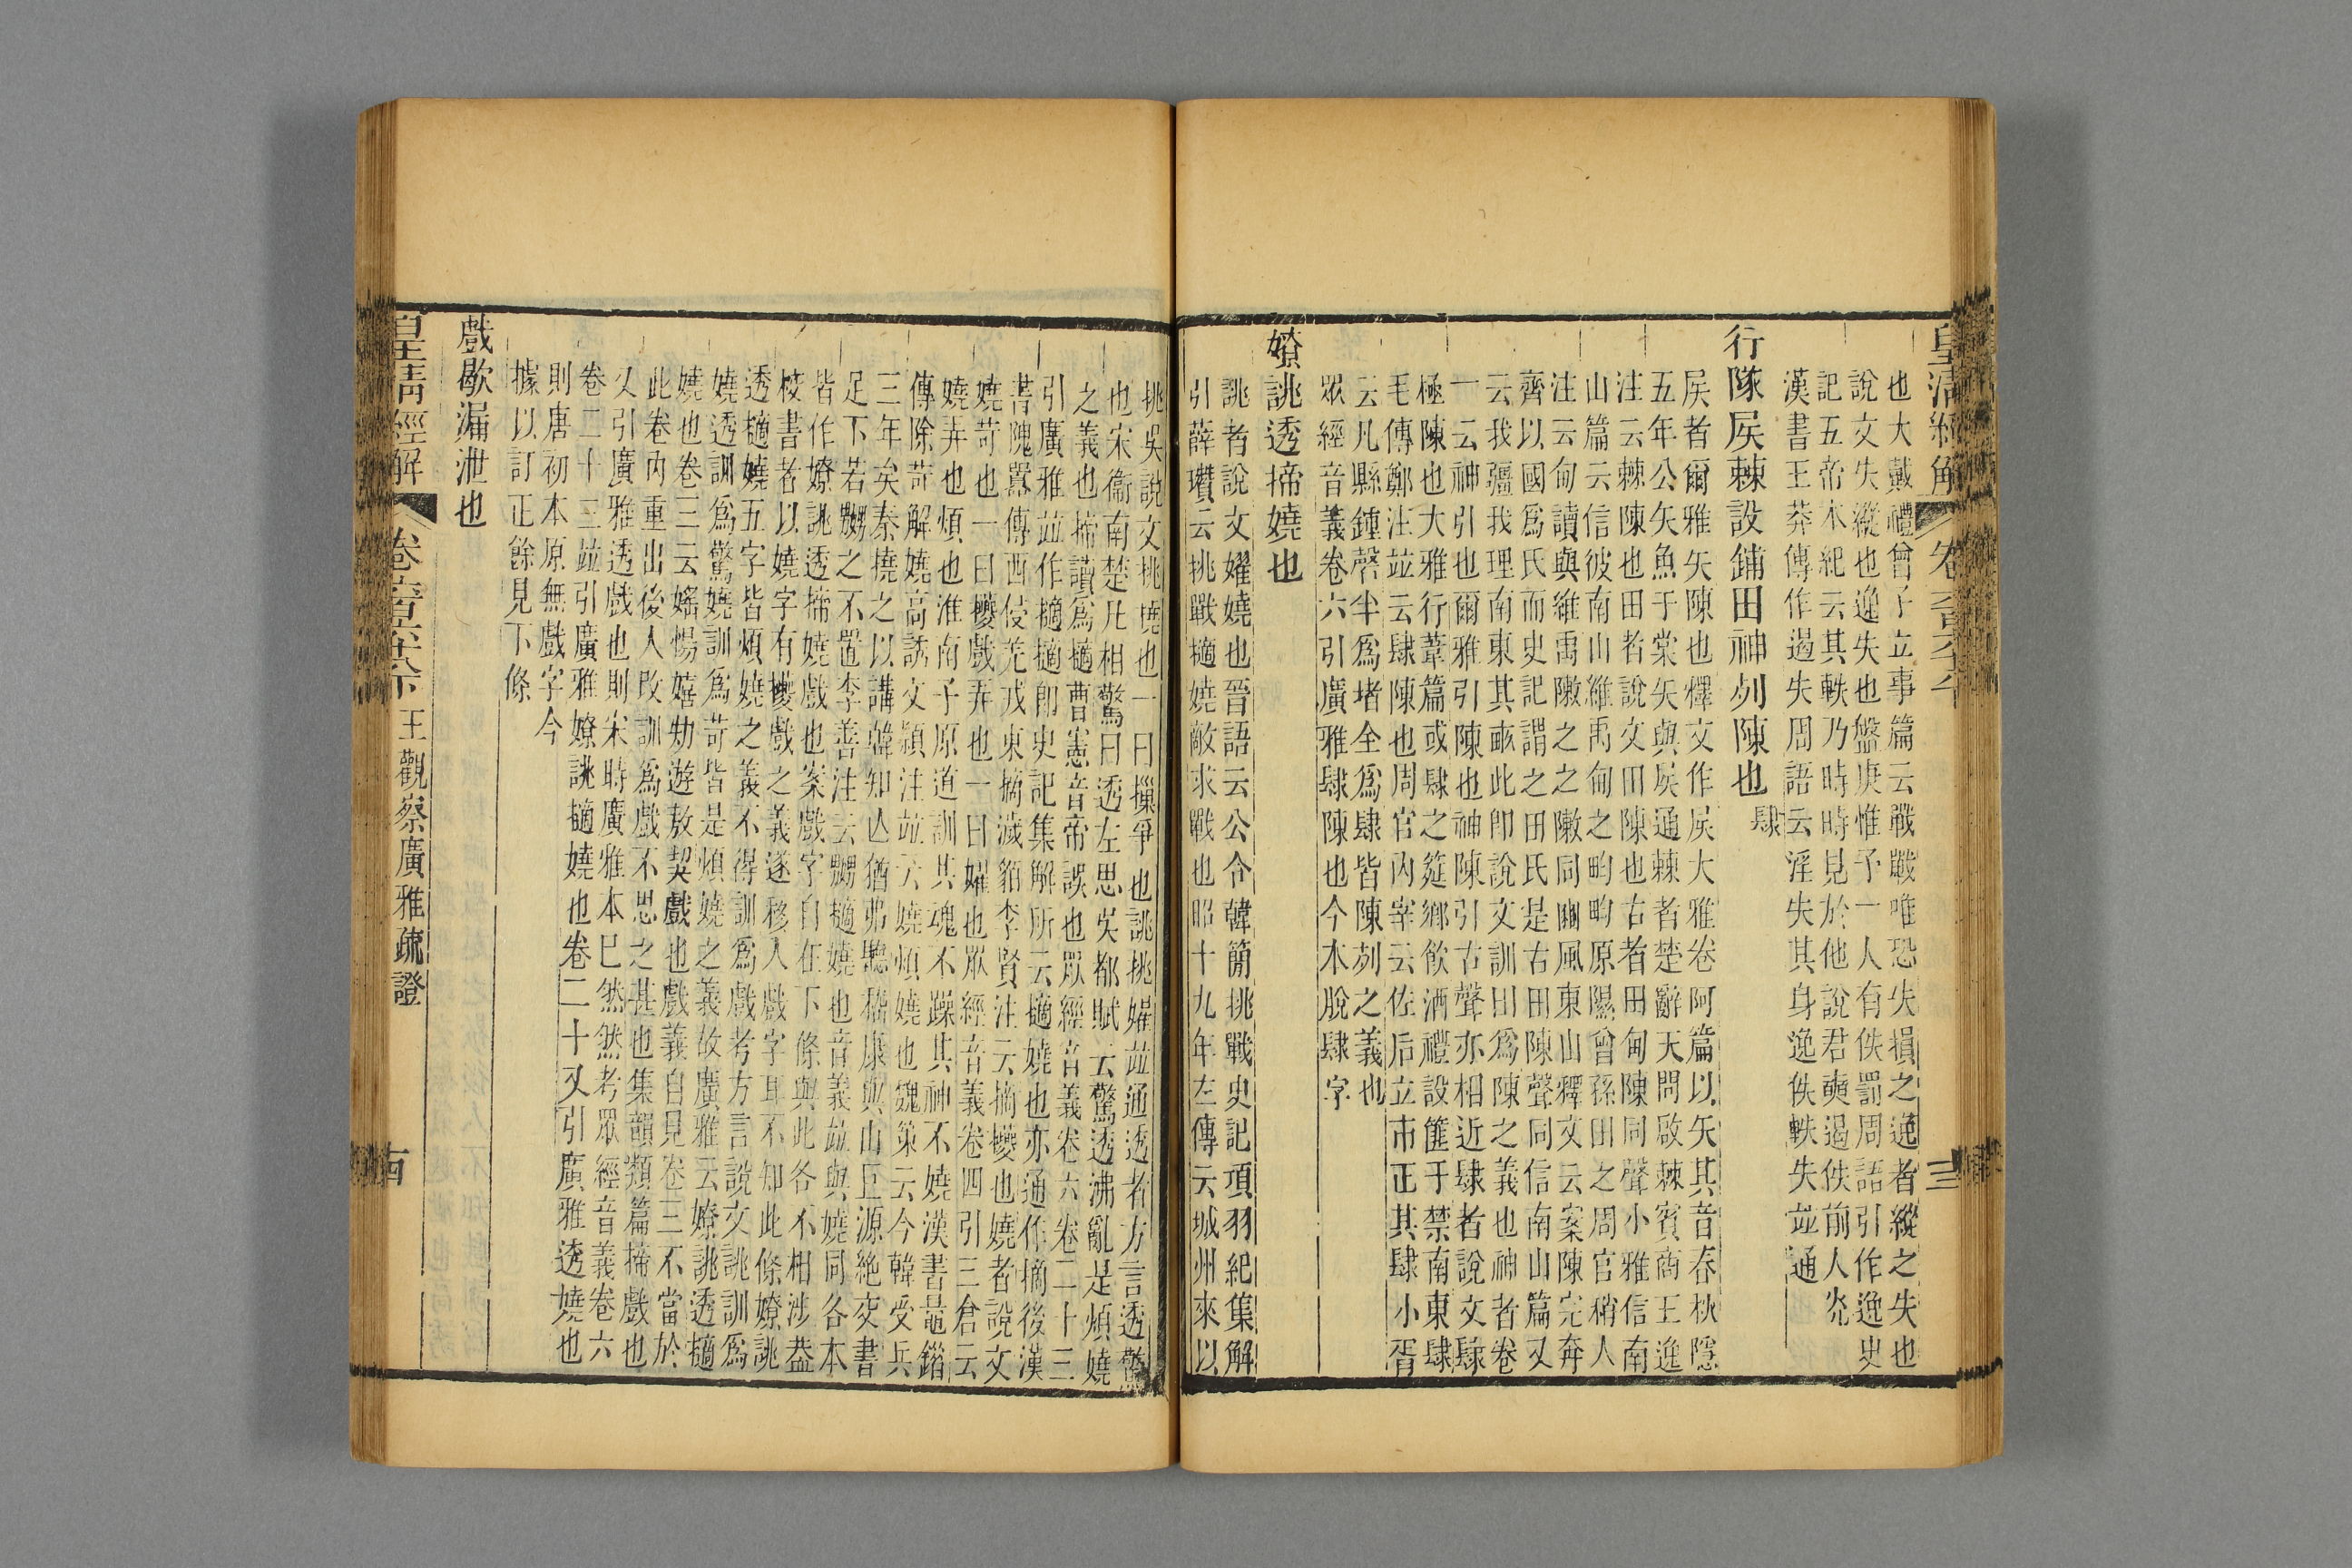 皇清經解
也大戴禮曾子立事篇云戰戰唯恐失損之逸者縱之失也
說文失縱也逸失也盤庚惟予一人有佚罰周語引作逸史
記五帝本紀云其軼乃時時見於他說君奭遏佚前人光
漢書王莽傳作遏失周語云淫失其身逸佚軼失並通
行隊㑨棘設鋪田神列陳也肆
㑨者爾雅矢陳也釋文作㑨大雅卷阿篇以矢其音春秋隱
五年公矢魚于棠矢與㑨通棘者楚辭天問啟棘賓商王逸
注云棘陳也田者說文田陳也古者田甸陳同聲小雅信南
山篇云信彼南山維禹甸之畇畇原隰曾孫田之周官稍人
注云甸讀與維禹敶之之敶同豳風東山釋文云案陳完奔
齊以國為氏而史記謂之田氏是古田陳聲同信南山篇又
云我疆我理南東其畝此卽說文訓田為陳之義也神者卷
一云神引也爾雅引陳也神陳引古聲亦相近肆者說文肆
極陳也大雅行葦篇或肆之筵鄉飲酒禮設篚于禁南東肆
毛傳鄭注並云肆陳也周官內宰云佐后立市正其肆小胥
云凡縣鍾磬半為堵全為肆皆陳列之義也
眾經音義卷六引廣雅肆陳也今本脫肆字
嫽誂透揥嬈也
誂者說文嬥嬈也晉語云公令韓簡挑戰史記項羽紀集解
引薛瓚云挑戰擿嬈敵求戰也昭十九年左傳云城州來以
挑吳說文挑撓也一曰摷爭也誂挑嬥並通透者方言透驚
也宋衞南楚凡相驚曰透左思吳都賦云驚透沸亂是煩嬈
之義也揥讀為擿曹憲音帝誤也眾經音義卷六卷二十三
引廣雅並作擿擿卽史記集解所云擿嬈也亦通作摘後漢
書隗囂傳西侵羌戎東摘濊貊李賢注云摘擾也嬈者說文
嬈苛也一曰擾戲弄也一曰嬥也眾經音義卷四引三倉云
嬈弄也煩也淮南子原道訓其魂不躁其神不嬈漢書鼂錯
傳除苛解嬈高誘文穎注並云嬈煩嬈也魏策云今韓受兵
三年矣秦撓之以講韓知亡猶弗聽嵇康與山巨源絕交書
足下若嬲之不置李善注云嬲擿嬈也音義並與嬈同各本
皆作嫽誂透揥嬈戲也案戲字自在下條與此各不相涉葢
校書者以嬈字有擾戲之義遂移入戲字耳不知此條嫽誂
透擿嬈五字皆煩嬈之義不得訓為戲考方言說文誂訓為
嬈透訓為驚嬈訓為苛皆是煩嬈之義故廣雅云嫽誂透擿
嬈也卷三云婸嬉劮遊敖契戲也戲義自見卷三不當於
此卷內重出後人改訓為戲不思之甚也集韻類篇揥戲也
又引廣雅透戲也則宋時廣雅本已然然考眾經音義卷六
卷二十三並引廣雅嫽誂擿嬈也卷二十又引廣雅透嬈也
則唐初本原無戲字今
據以訂正餘見下條
戲歇漏泄也
皇清經解 王觀察廣雅疏證